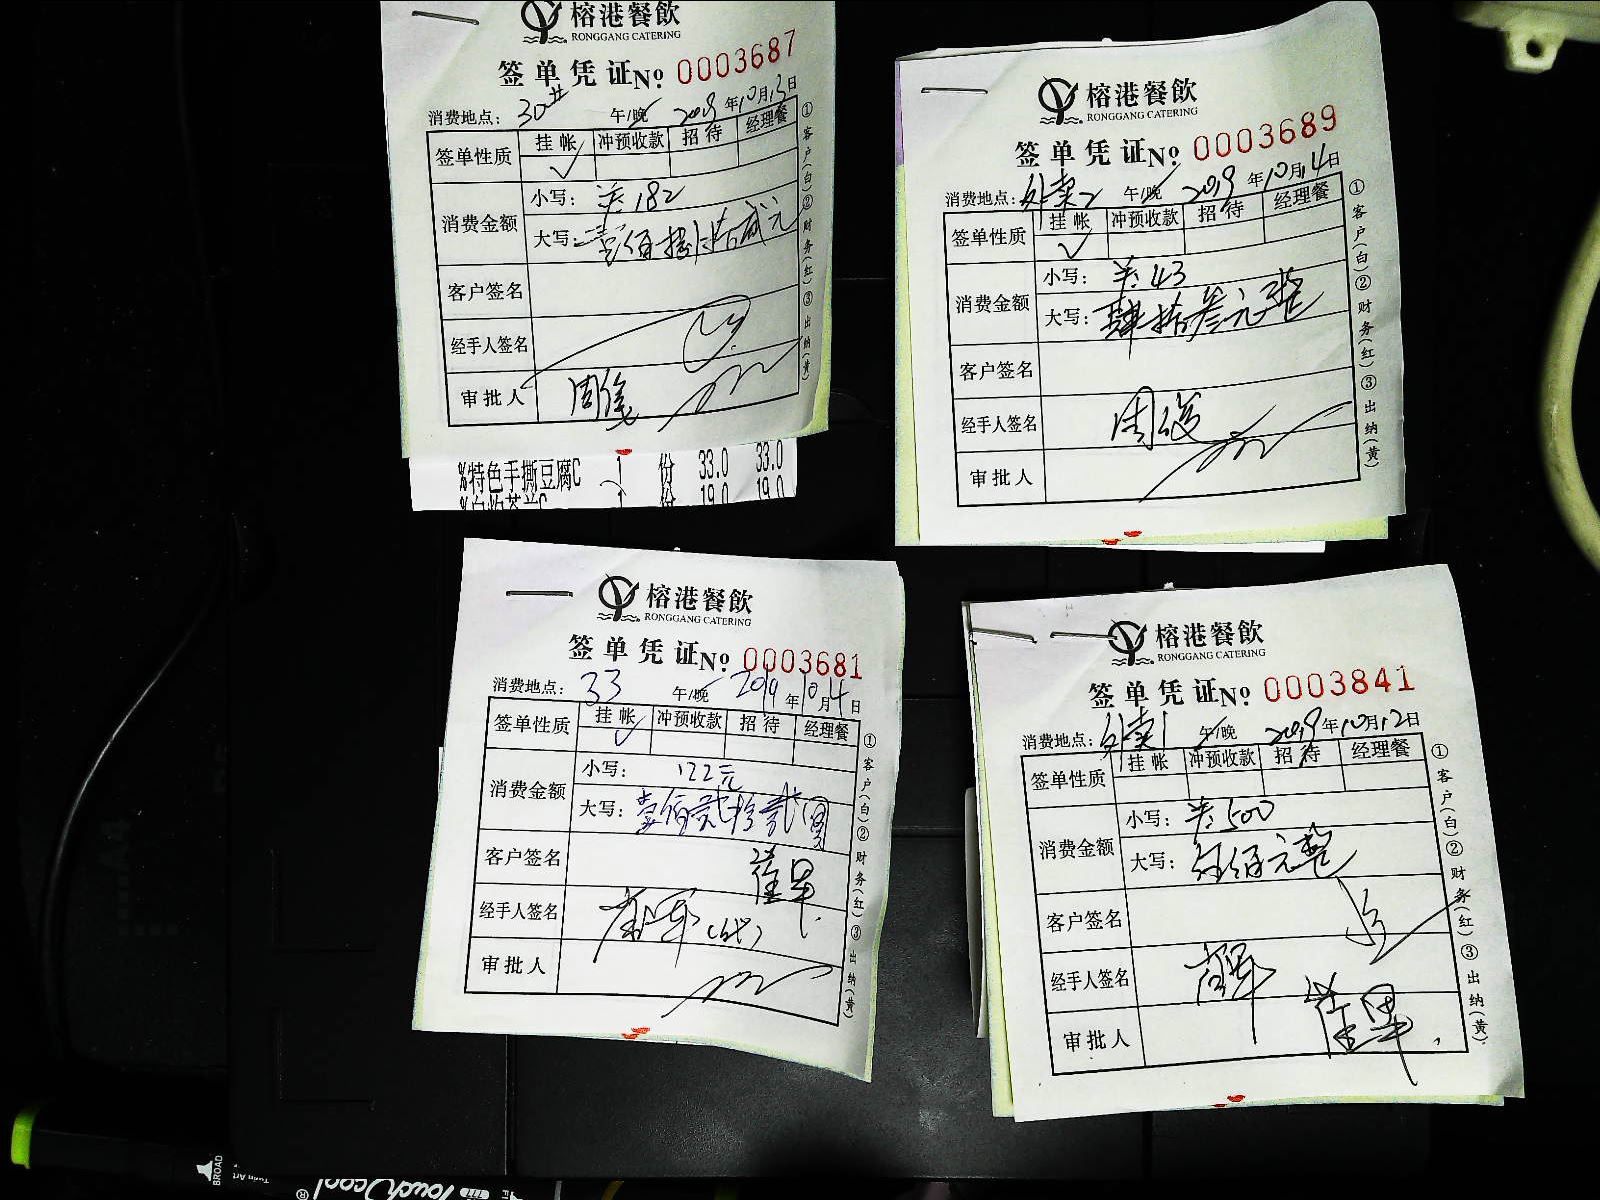 榕港餐飲
RONGGANG CATERING
签单凭证 No 0003687
消费地点: 30# 午/晚 2019年10月13日
签单性质 挂帐 冲预收款 招待 经理餐
✓
消费金额 小写: 羊:182
大写: 壹佰捌拾贰元
客户签名
经手人签名
审批人
①客户(白)②财务(红)③出纳(黄)
%特色手撕豆腐C 1 份 33.0 33.0
1 份 19.0 19.0
榕港餐飲
RONGGANG CATERING
签单凭证 No 0003689
消费地点: 外卖2 午/晚 2019年10月14日
签单性质 挂帐 冲预收款 招待 经理餐
✓
消费金额 小写: 羊:43
大写: 肆拾叁元整
客户签名
经手人签名
审批人
①客户(白)②财务(红)③出纳(黄)
榕港餐飲
RONGGANG CATERING
签单凭证 No 0003681
消费地点: 33 午/晚 2019年10月4日
签单性质 挂帐 冲预收款 招待 经理餐
✓
消费金额 小写: 122元
大写: 壹佰贰拾贰圆
客户签名
经手人签名 (代)
审批人
①客户(白)②财务(红)③出纳(黄)
榕港餐飲
RONGGANG CATERING
签单凭证 No 0003841
消费地点: 外卖1 午/晚 2019年10月12日
签单性质 挂帐 冲预收款 招待 经理餐
消费金额 小写: 羊:500
大写: 伍佰元整
客户签名
经手人签名
审批人
①客户(白)②财务(红)③出纳(黄)
BROAD
Touch cool